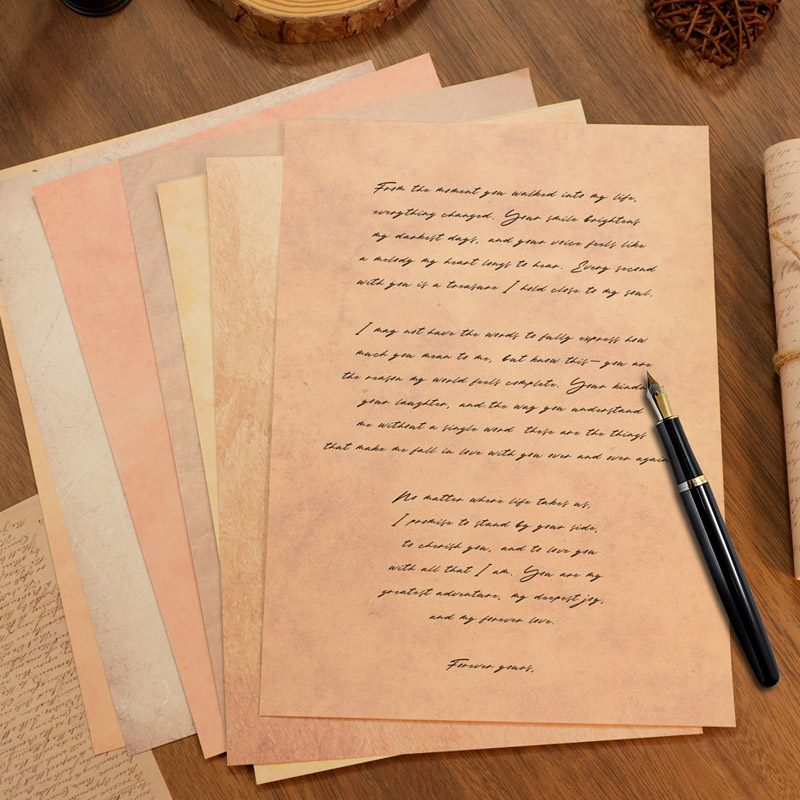 From the moment you walked into my life,
everything changed. Your smile brightens
my darkest days, and your voice feels like
a melody my heart longs to hear. Every second
with you is a treasure I hold close to my soul.
I may not have the words to fully express how
much you mean to me, but know this—you are
the reason my world feels complete. Your kind
your laughter, and the way you understand
me without a single word these are the things
that make me fall in love with you over and over again
No matter where life takes us,
I promise to stand by your side,
to cherish you, and to love you
with all that I am. You are my
greatest adventure, my deepest joy,
and my forever love.
Forever yours,